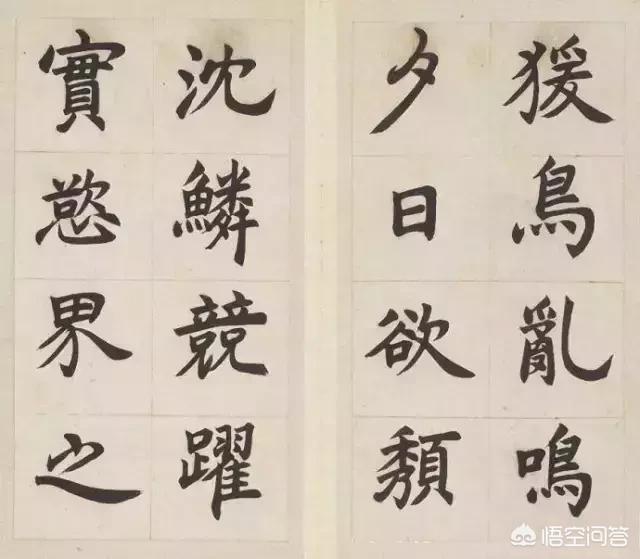 猨鳥亂鳴
夕日欲頹
沈鱗競躍
實慾界之
悟空问答